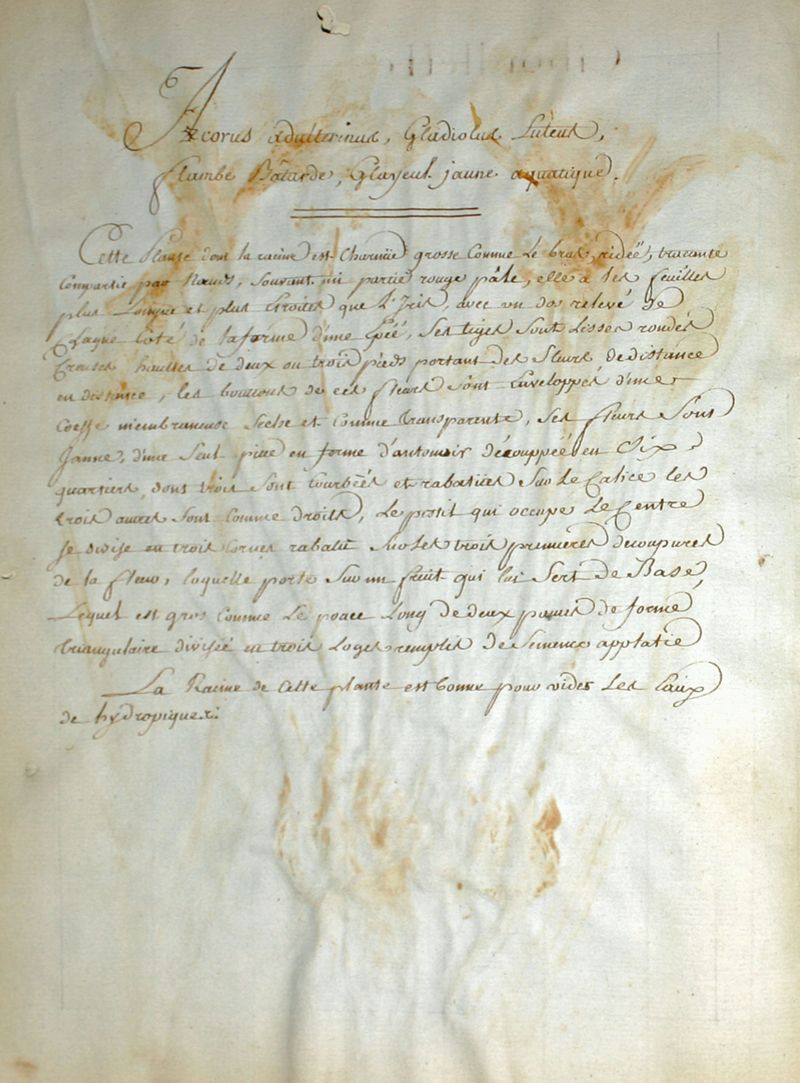 Acorus adulterinus, Gladiolus Luteus,
flambe Bâtarde, Glayeul jaune aquatique.
Cette Plante dont la racine est Charnüe grosse Comme Le bras, ridéé, tracante
Compartie par Nœuds, souvant mi partie rouge pâle, elle à les feuilles
plus Longue et plus Etroites que L'Iris, avec un dos relevé de
Chaque Coté de la forme d'une Epéé, Ses tiges sont Lisses rondes
Creuses hauttes de deux ou trois pieds portant des fleurs de distance
en distance, les boutons de ces fleurs sont Enveloppés d'une
Coeffe membraneuse seche et Comme transparente, Ses fleurs Sont
Jaune, d'une Seul piece en forme d'antonoir découppéé en Six
quartiers dont trois sont Courbéés et rabatües Sur le Calice les
trois autres sont Comme droits, Le pistil qui occupe Le Centre
se divise en trois rabatu Sur les trois premieres decoupures
de la fleur, laquelle porte Sur un fruit qui lui Sert de Base,
Lequel est gros Comme Le pouce Long de deux pouces de forme
triangulaire diviséé en trois Loges remplies de Semence applatie
La Racine de Cette plante est bonne pour vider Les Eaux
de hydropiques.